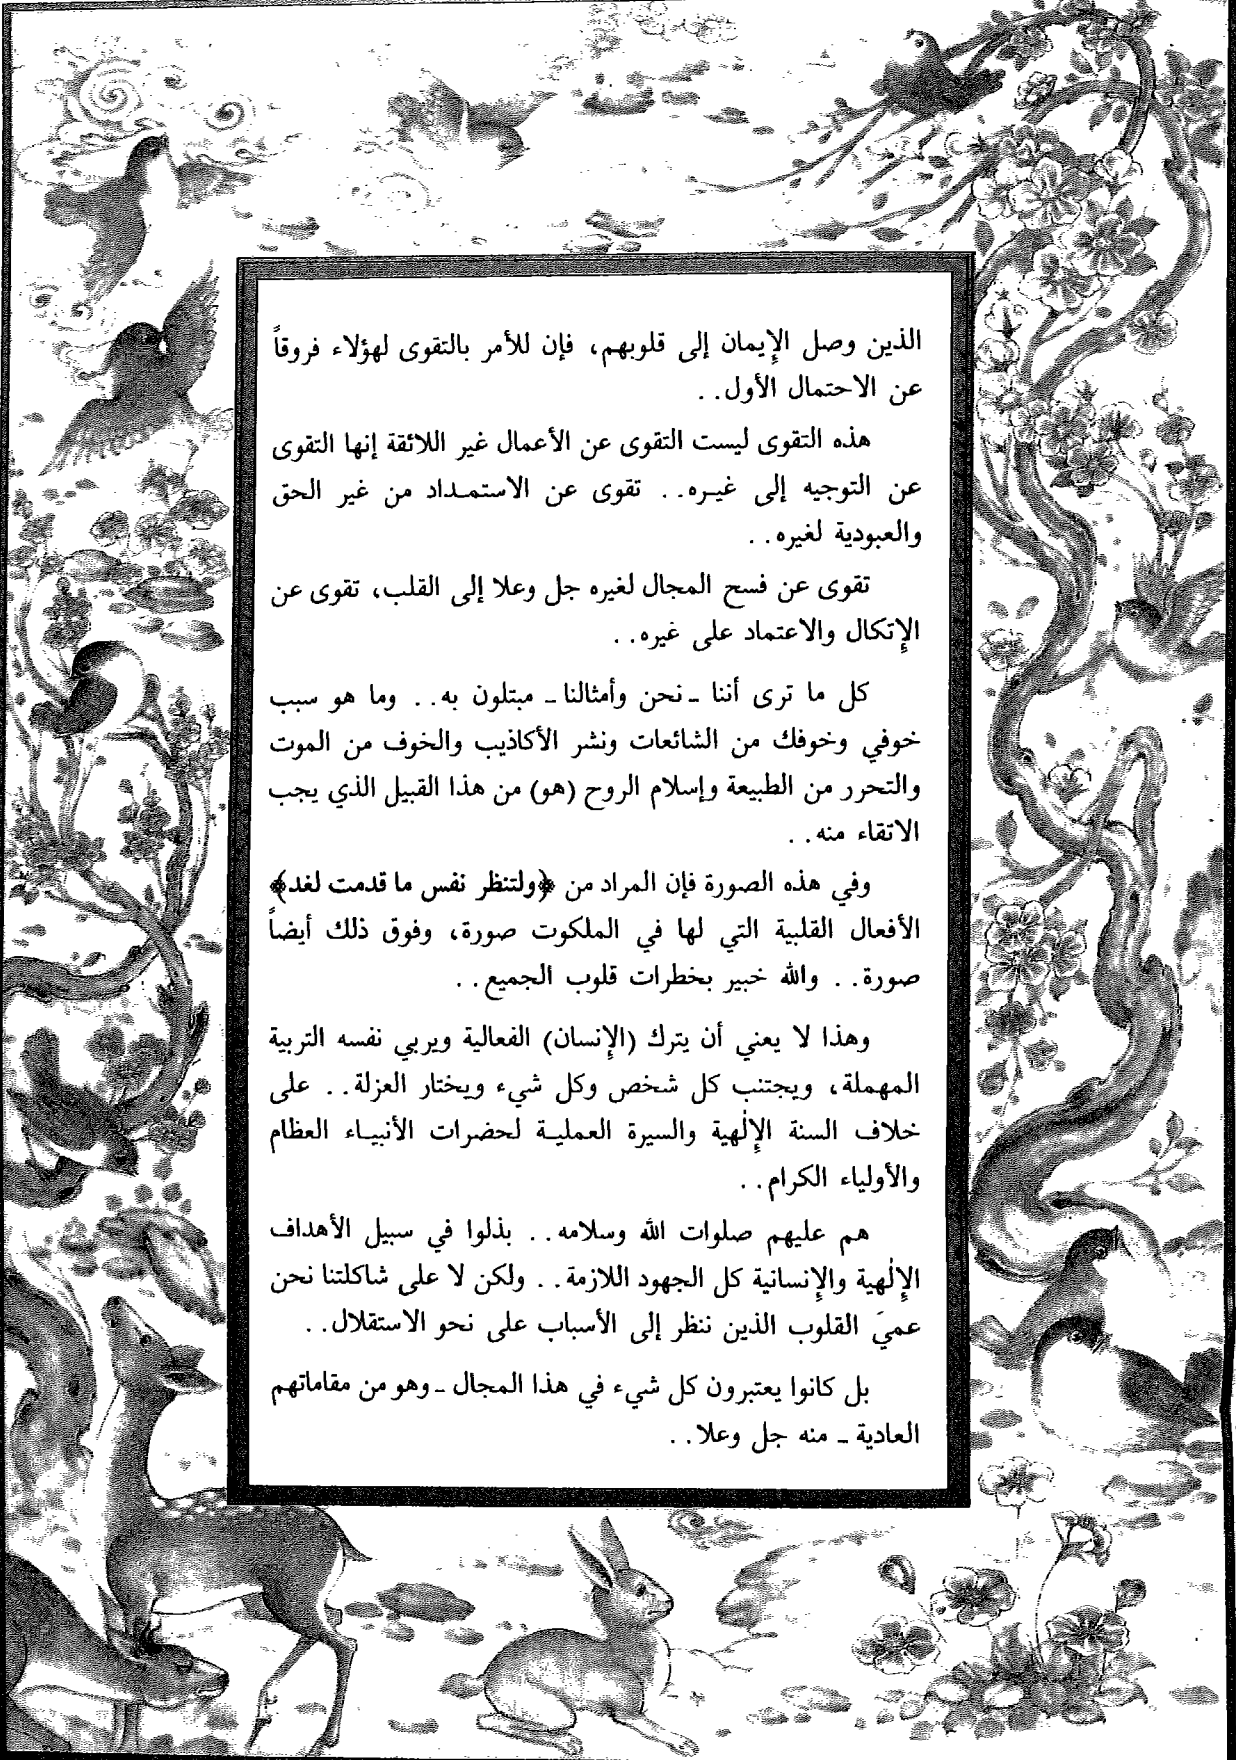 الذين وصل الإِيمان إلى قلوبهم، فإن للأمر بالتقوى لهؤلاء فروقاً
عن الاحتمال الأول. .
هذه التقوى ليست التقوى عن الأعمال غير اللائقة إنها التقوى
عن التوجيه إلى غيره. . تقوى عن الاستمداد من غير الحق
والعبودية لغيره. .
تقوى عن فسح المجال لغيره جل وعلا إلى القلب، تقوى عن
الإِتكال والاعتماد على غيره. .
كل ما ترى أننا ـ نحن وأمثالنا ـ مبتلون به. . وما هو سبب
خوفي وخوفك من الشائعات ونشر الأكاذيب والخوف من الموت
والتحرر من الطبيعة وإسلام الروح (هو) من هذا القبيل الذي يجب
الاتقاء منه. .
وفي هذه الصورة فإن المراد من ﴿ولتنظر نفس ما قدمت لغد﴾
الأفعال القلبية التي لها في الملكوت صورة، وفوق ذلك أيضاً
صورة. . والله خبير بخطرات قلوب الجميع. .
وهذا لا يعني أن يترك (الإِنسان) الفعالية ويربي نفسه التربية
المهملة، ويجتنب كل شخص وكل شيء ويختار العزلة. . على
خلاف السنة الإِلٰهية والسيرة العملية لحضرات الأنبياء العظام
والأولياء الكرام. .
هم عليهم صلوات الله وسلامه. . بذلوا في سبيل الأهداف
الإِلٰهية والإِنسانية كل الجهود اللازمة. . ولكن لا على شاكلتنا نحن
عميَ القلوب الذين ننظر إلى الأسباب على نحو الاستقلال. .
بل كانوا يعتبرون كل شيء في هذا المجال ـ وهو من مقاماتهم
العادية ـ منه جل وعلا. .